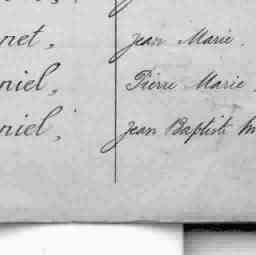 net, Jean Marie.
niel, Pierre Marie.
niel, Jean Baptiste